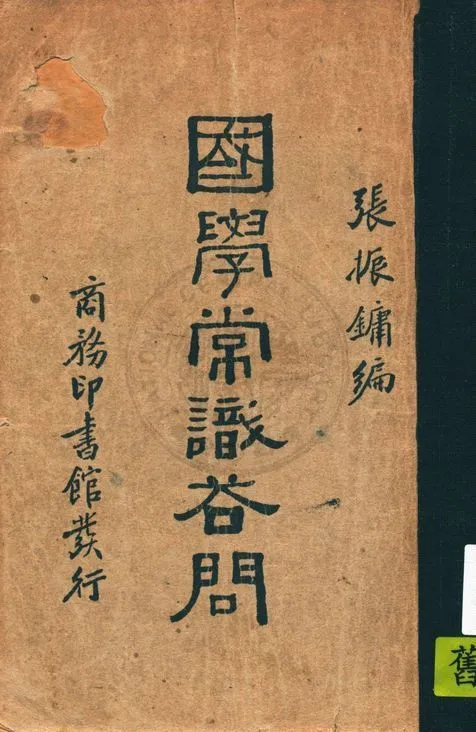 張振鏞編
國學常識答問
商務印書館發行
舊